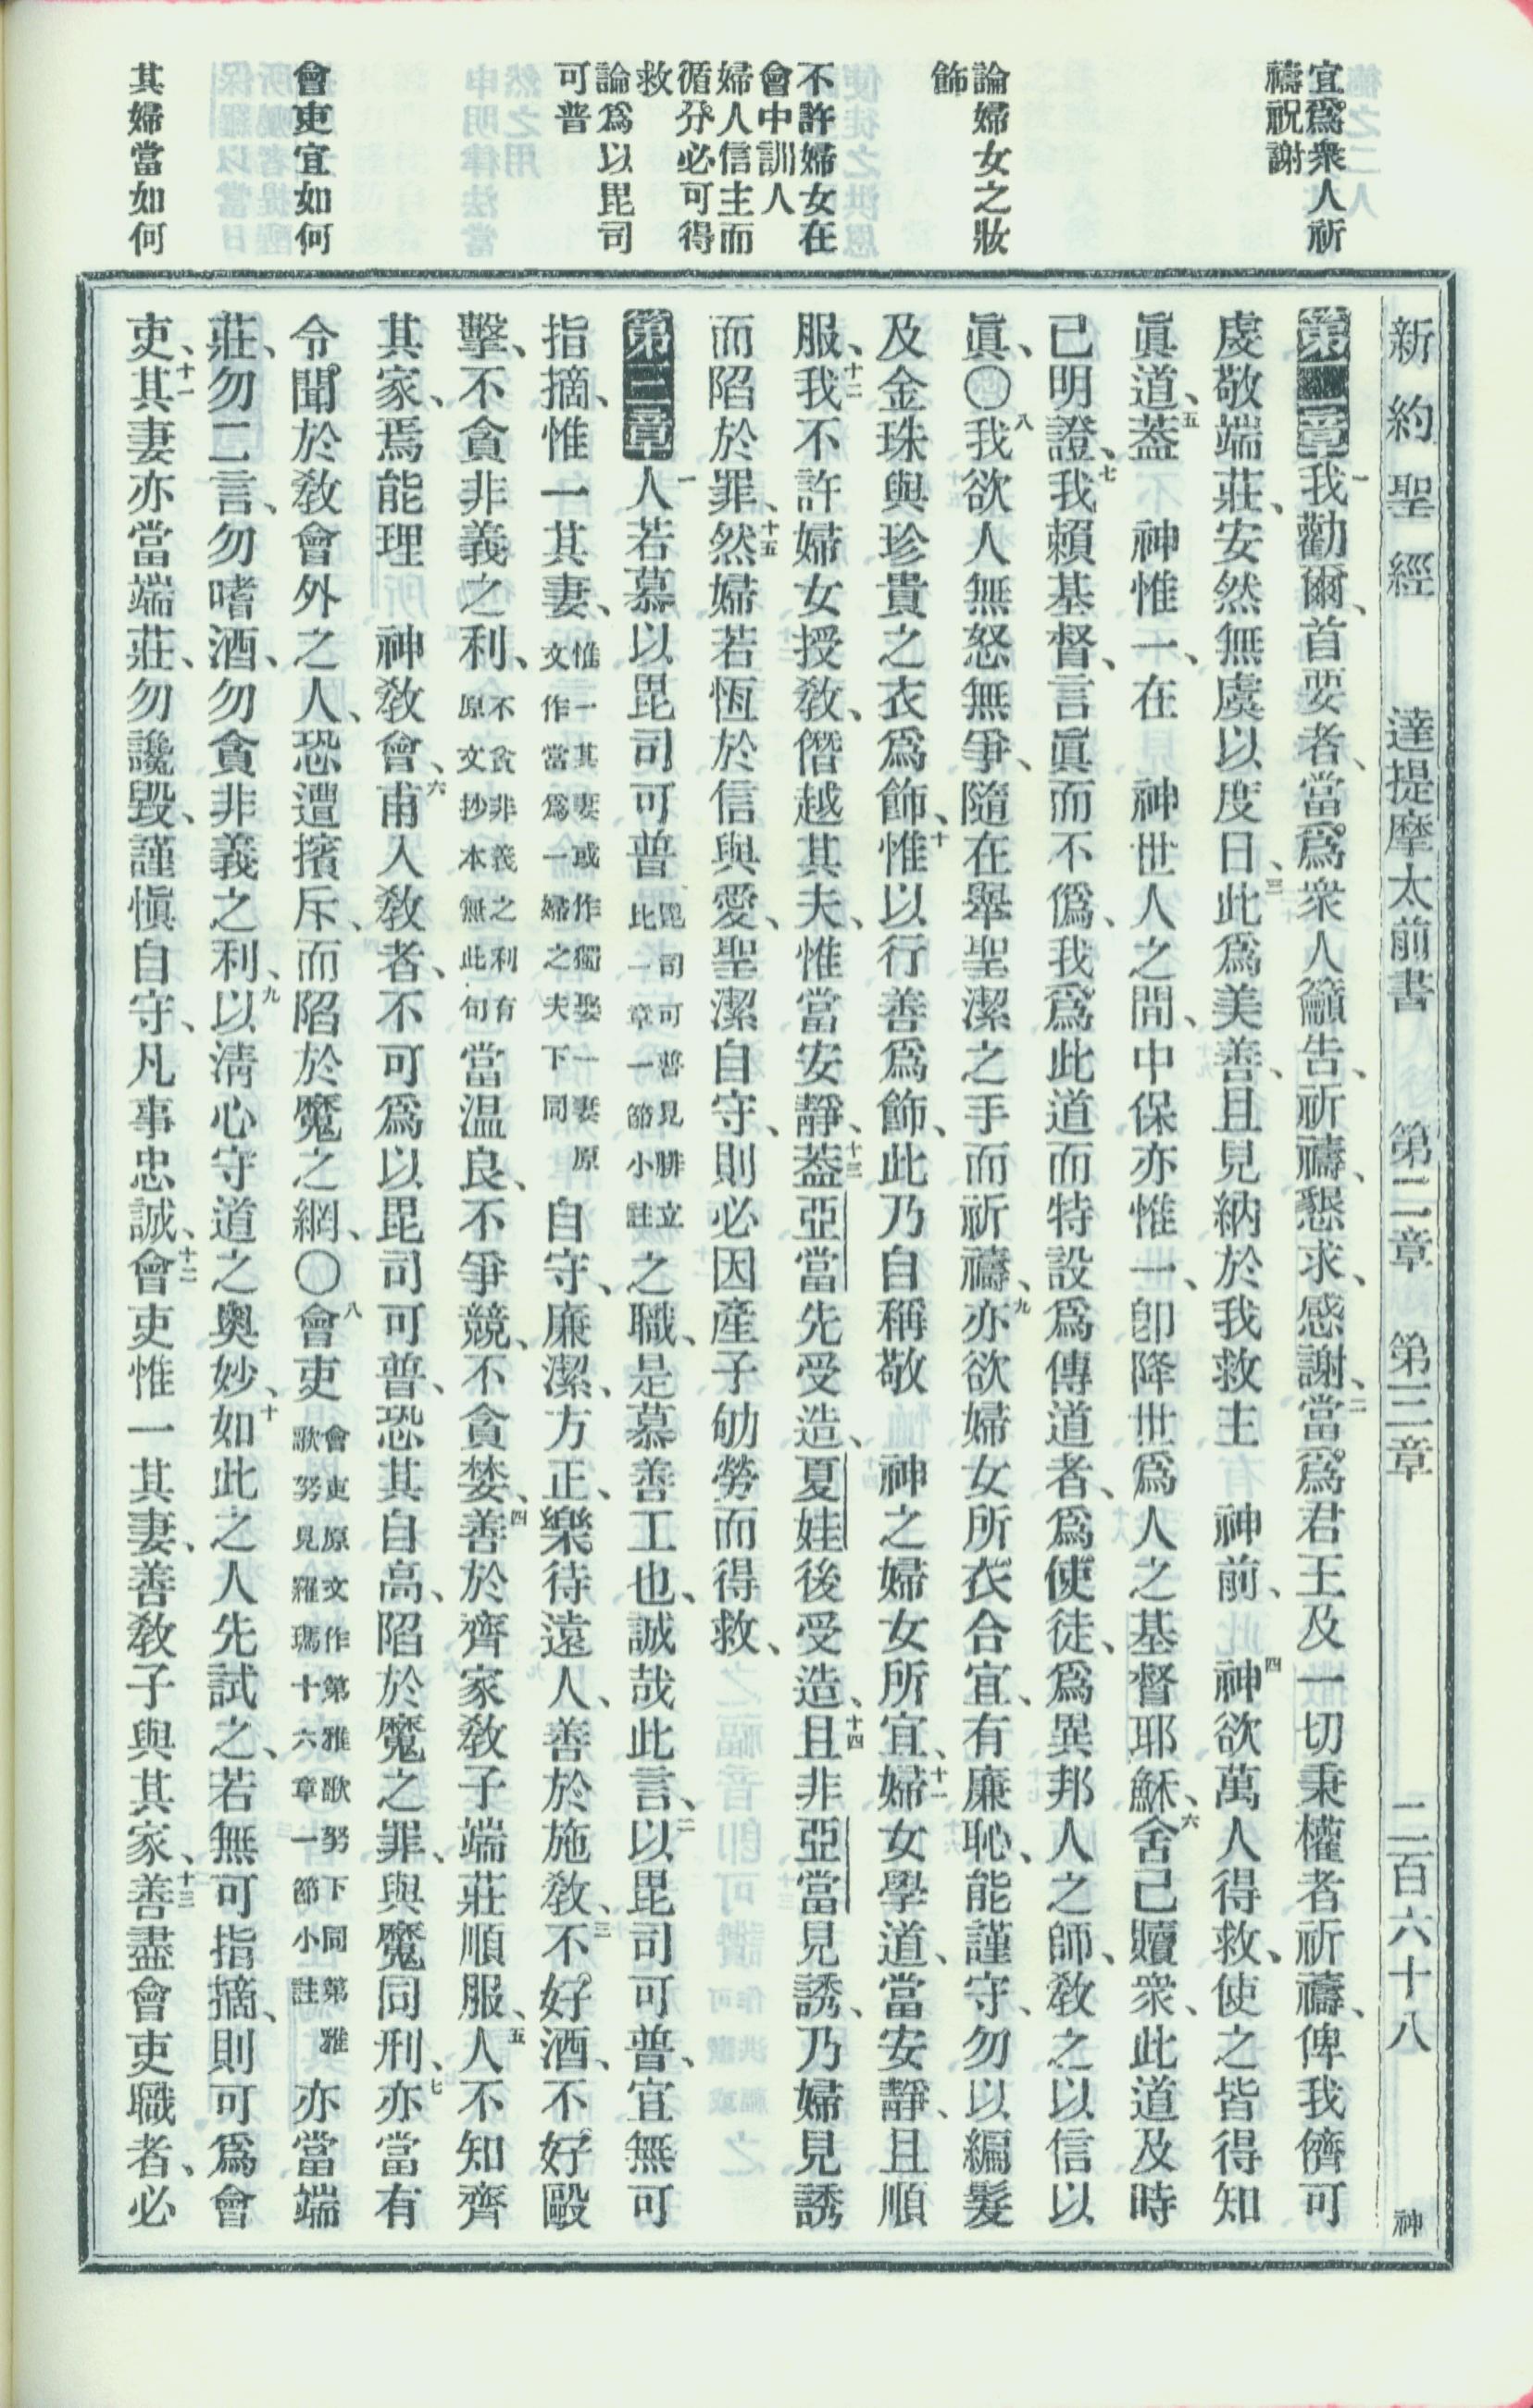 新約聖經 達提摩太前書 第二章 第三章 二百六十八 神
宜爲衆人祈
禱祝謝
論婦女之妝
飾
不許婦女在
會中訓人
婦人信主而
循分必可得
救
論爲以毘司
可普
會吏宜如何
其婦當如何
第二章一我勸爾、首要者、當爲衆人籲告、祈禱、懇求、感謝、二當爲君王及一切秉權者祈禱、俾我儕可
虔敬端莊、安然無虞以度日、三此爲美善、且見納於我救主 神前、四神欲萬人得救、使之皆得知
眞道、五蓋 神惟一、在 神世人之間、中保亦惟一、卽降世爲人之基督耶穌、六舍己贖衆、此道及時
已明證、七我賴基督、言眞而不僞、我爲此道而特設爲傳道者、爲使徒、爲異邦人之師、敎之以信以
眞、〇八我欲人無怒無爭、隨在舉聖潔之手而祈禱、九亦欲婦女所衣合宜、有廉恥、能謹守、勿以編髮
及金珠與珍貴之衣爲飾、十惟以行善爲飾、此乃自稱敬 神之婦女所宜、十一婦女學道、當安靜、且順
服、十二我不許婦女授敎、僭越其夫、惟當安靜、十三蓋亞當先受造、夏娃後受造、十四且非亞當見誘、乃婦見誘
而陷於罪、十五然婦若恆於信與愛、聖潔自守、則必因產子劬勞而得救、
第三章一人若慕以毘司可普毘司可普見腓立比一章一節小註之職、是慕善工也、誠哉此言、二以毘司可普、宜無可
指摘、惟一其妻、惟一其妻或作獨娶一妻原文作當爲一婦之夫下同自守、廉潔、方正、樂待遠人、善於施敎、三不好酒、不好毆
擊、不貪非義之利、不貪非義之利有原文抄本無此句當温良、不爭競、不貪婪、四善於齊家、敎子端莊順服、五人不知齊
其家、焉能理 神敎會、六甫入敎者、不可爲以毘司可普、恐其自高、陷於魔之罪、與魔同刑、七亦當有
令聞於敎會外之人、恐遭擯斥、而陷於魔之網、〇八會吏會吏原文作第雅歌努下同第雅歌努見羅瑪十六章一節小註亦當端
莊、勿二言、勿嗜酒、勿貪非義之利、九以淸心守道之奧妙、十如此之人先試之、若無可指摘、則可爲會
吏、十一其妻亦當端莊、勿讒毀、謹愼自守、凡事忠誠、十二會吏惟一其妻、善敎子與其家、十三善盡會吏職者、必